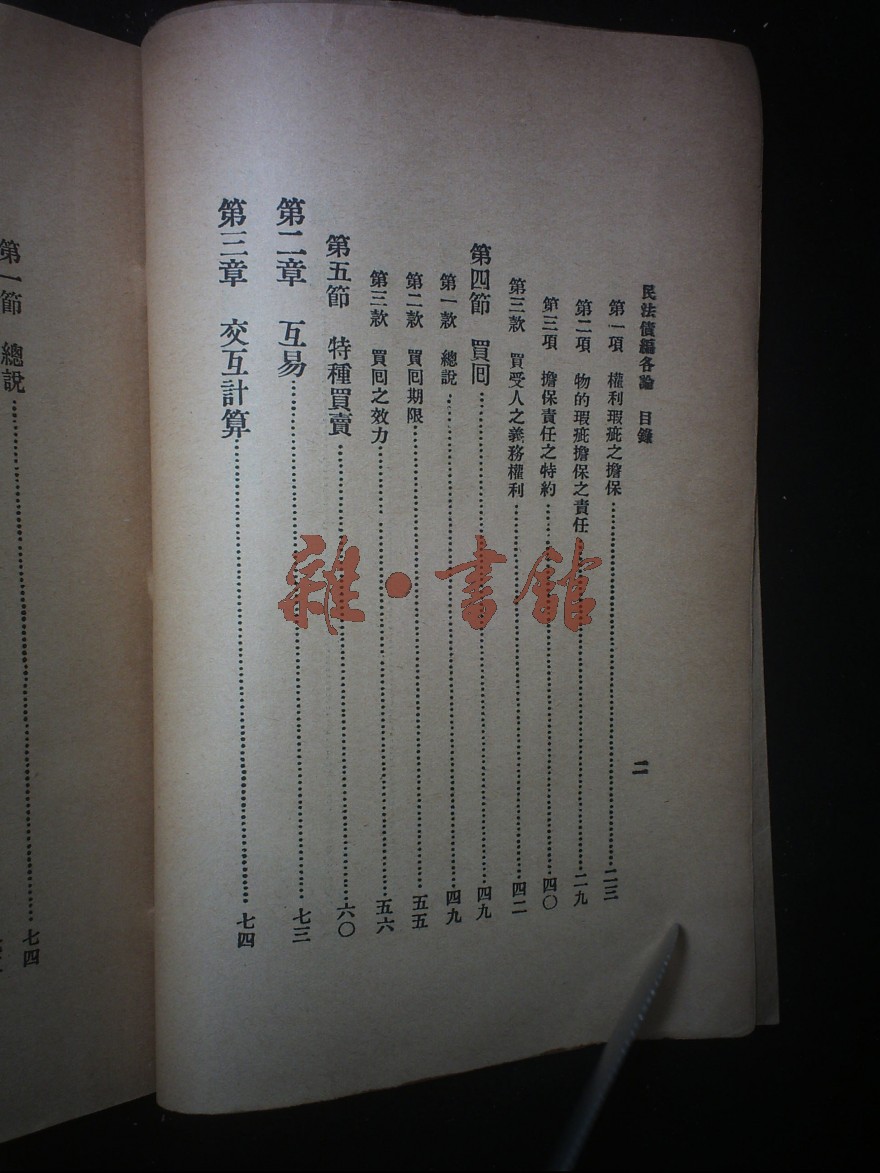 民法債編各論　目錄　二
第一項　權利瑕疵之擔保……二三
第二項　物的瑕疵擔保之責任……二九
第三項　擔保責任之特約……四〇
第三款　買受人之義務權利……四二
第四節　買囘……四九
第一款　總說……四九
第二款　買囘期限……五五
第三款　買囘之效力……五六
第五節　特種買賣……六〇
第二章　互易……七三
第三章　交互計算……七四
第一節　總說……七四
雜·書館